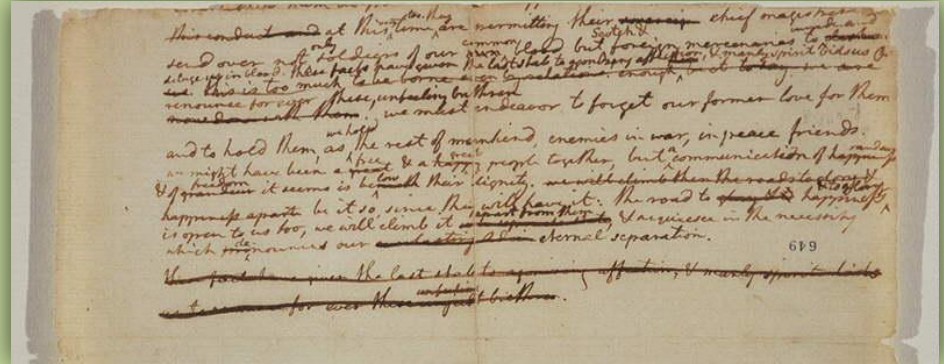 this conduct and at this time too, they are permitting their sovereign chief magistrate to
send over not only soldiers of our common blood but Scotch & foreign mercenaries to invade and
deluge us in blood. these facts have given the last stab to agonizing affection, & manly spirit bids us to
renounce for ever these unfeeling brethren. we must endeavor to forget our former love for them
and to hold them, as we hold the rest of mankind, enemies in war, in peace friends.
we might have been a free & a great people together, but a communication of
& of freedom it seems is below their dignity. we will climb then the roads to glory &
happiness apart be it so, since they will have it: the road to happiness & to glory
is open to us too, we will climb it apart from them & acquiesce in the necessity
which denounces our everlasting adieu eternal separation.
649
have given the last stab to agonizing affection, & manly spirit bids
us to renounce for ever these unfeeling brethren.